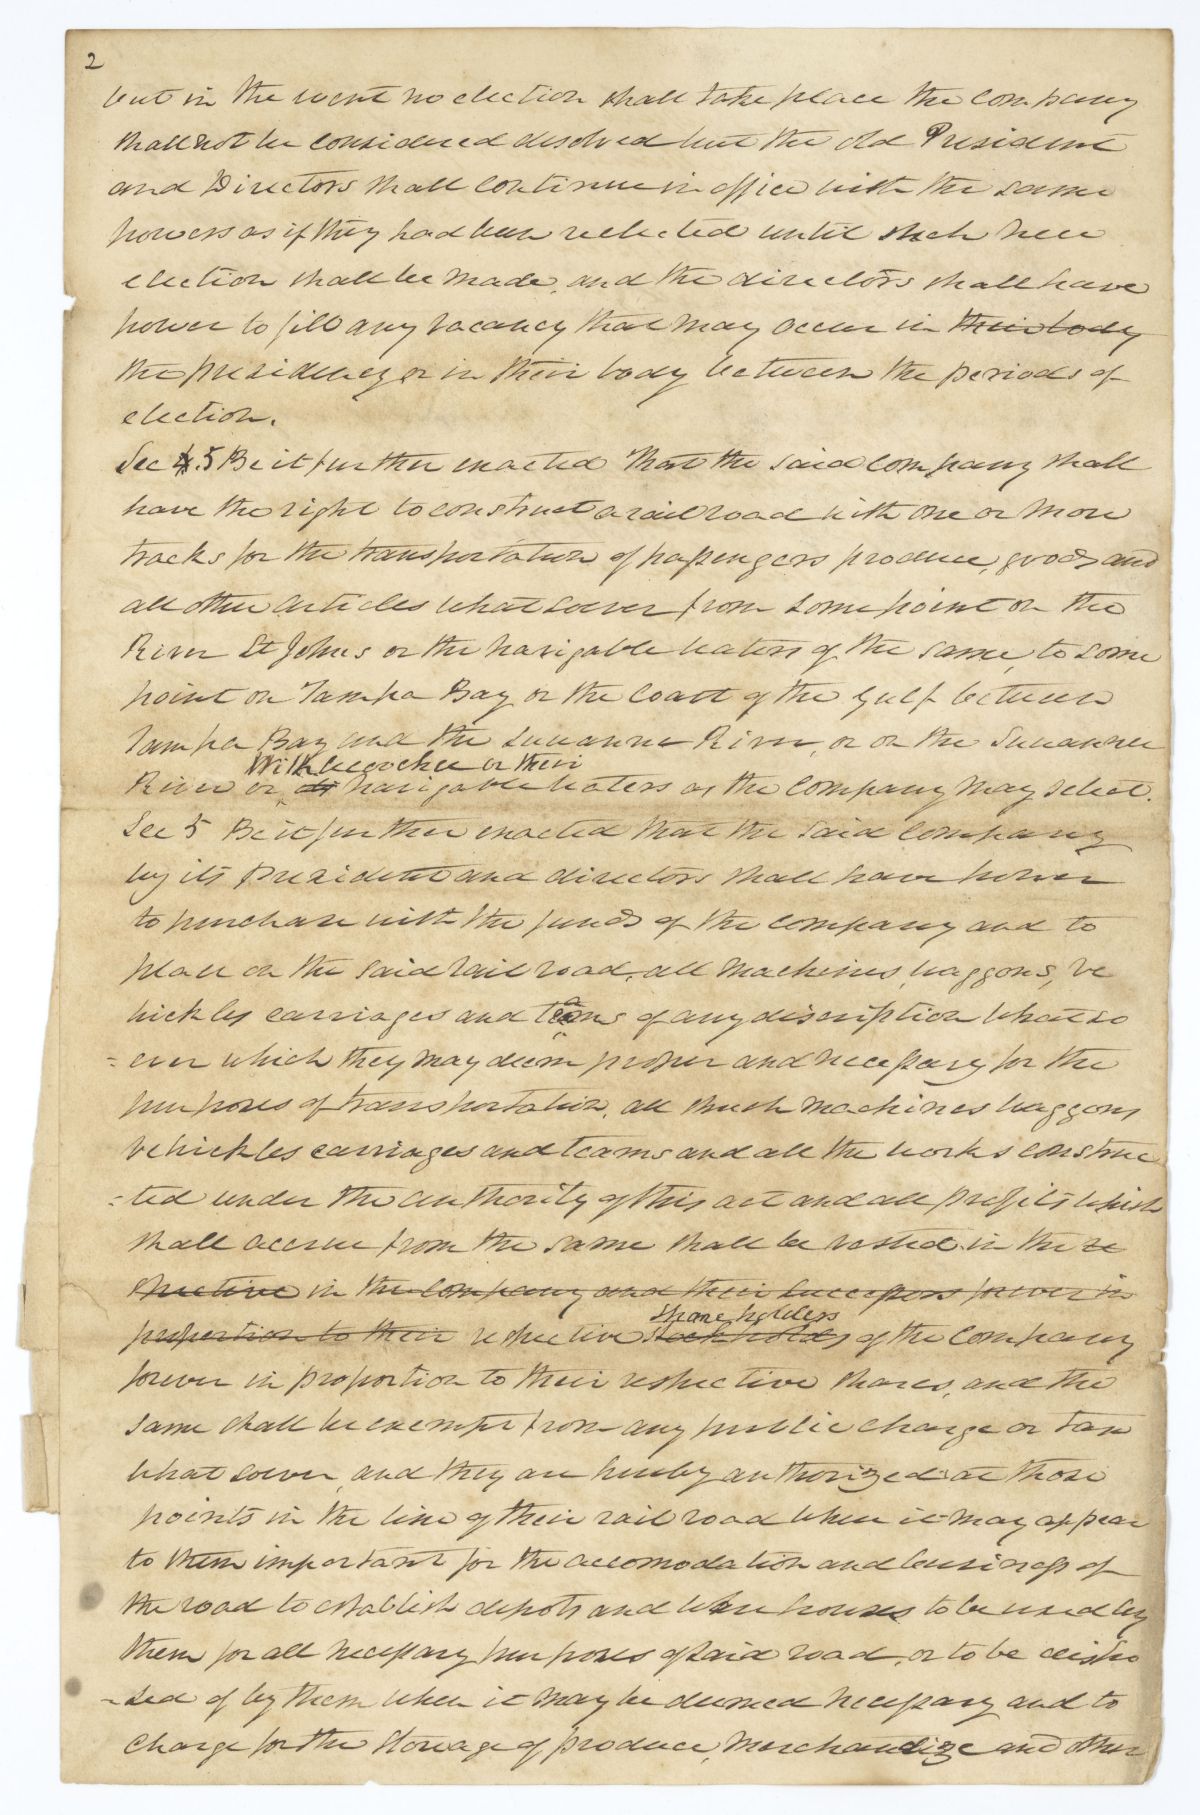 2
but in the event no election shall take place the company
shall not be considered desolved but the old President
and Directors shall continue in office with the same
powers as if they had been relected until such new
election shall be made, and the directors shall have
power to fill any vacancy that may occur in their body
the presidency or in their body between the periods of
election.
Sec 4.5 Be it further enacted That the said company shall
have the right to construct a rail road with one or more
tracks for the transportation of passengers produce, goods and
all other articles whatsoever from some point on the
River St Johns or the navigable waters of the same, to some
point on Tampa Bay or the Coast of the Gulf between
Tampa Bay and the Suwannee River, or on the Suwannee
Withlecoochee or their
River or navigable waters as the company may select.
Sec 5 Be it further enacted that the said company
by its president and directors shall have power
to purchase with the funds of the company and to
place on the said rail road, all machines, waggons, ve
hickles carriages and teams of any discription whatso
= ever which they may deem proper and necessary for the
purposes of transportation, all such machines waggons
vehickles carriages and teams and all the works construc
= ted under the authority of this act and all profits which
shall accrue from the same shall be vested in the re
spective in the company and their successors forever in
share holders
proportion to their respective stockholds of the company
forever in proportion to their respective shares, and the
same shall be exempt from any public charge or tax
whatsoever, and they are hereby authorized at those
points in the line of their rail road where it may appear
to them important for the accomodation and business of
the road to establish depots and ware houses to be used by
them for all necessary purposes of said road, or to be dispo
- sed of by them when it may be deemed necessary and to
charge for the storage of produce, merchandize and other